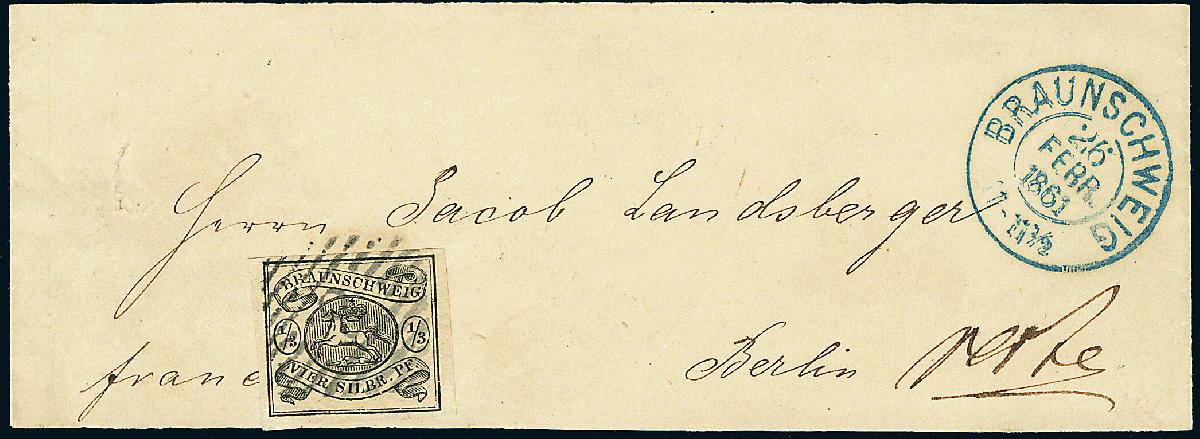 BRAUNSCHWEIG
26
FEBR.
1861
11-11½
Herrn Jacob Landsberger
BRAUNSCHWEIG
1/3 1/3
VIER SILBR. PF
franc
Berlin